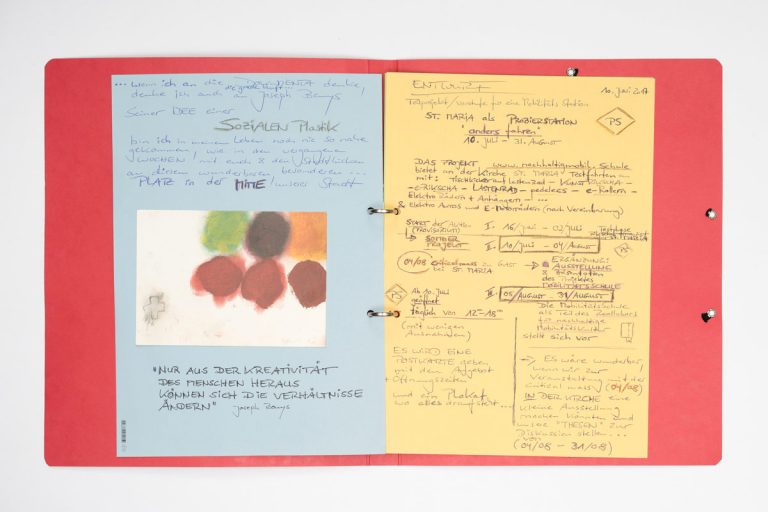 ... wenn ich an die DOCUMENTA denke,
denke ich auch an Joseph Beuys
Seiner IDEE einer
SOZIALEN Plastik
bin ich in meinem Leben noch nie so nahe
gekommen, wie in den vergangenen
WOCHEN, mit euch & den Stadtlücken
an diesem wunderbaren besonderen ...
PLATZ in der MITTE unserer Stadt
"NUR AUS DER KREATIVITÄT
DES MENSCHEN HERAUS
KÖNNEN SICH DIE VERHÄLTNISSE
ÄNDERN" Joseph Beuys
ENTWURF 10. Juni 2017
Testprojekt / Vorstufe für eine Mobilitäts Station
ST. MARIA als PROBIERSTATION
"anders fahren"
10. Juli - 31. AUGUST
PS
DAS PROJEKT www.nachhaltigmobil.schule
bietet an der Kirche ST. MARIA Testfahrten an
mit: Tischkicker auf Lastenrad - KUNST RIKSCHA -
- e-RIKSCHA - LASTENRAD - pedelecs - e-Rollern -
Elektro Rädern + Anhängern - ...
& Elektro Autos und E-Motorrädern (nach Vereinbarung)
START der
(PROVISORIUM)
I. 16/Juni - 02/Juli
Testphase
SOMMER
PROJEKT
II. 10/Juli - 04/AUGUST
04/08 critical mass zu GAST
bei ST. MARIA
ERGÄNZUNG:
AUSSTELLUNG
des Projektes
MOBILITÄTSSCHULE
PS
Ab 10. Juli
geöffnet
täglich von 12-18
(mit wenigen
Ausnahmen)
III. 05/AUGUST - 31/AUGUST
Die Mobilitätsschule
als Teil des Reallabors
für nachhaltige
Mobilitätskultur
stellt sich vor
ES WIRD EINE
POSTKARTE geben
mit dem Angebot
+ Öffnungszeiten
und ein Plakat
wo alles draufsteht...
→ Es wäre wunderbar,
wenn wir zur
Veranstaltung mit der
critical mass (04/08)
IN DER KIRCHE eine
kleine Ausstellung
machen könnten und
unsere "THESEN" zur
Diskussion stellen ...
von
(04/08 - 31/08)